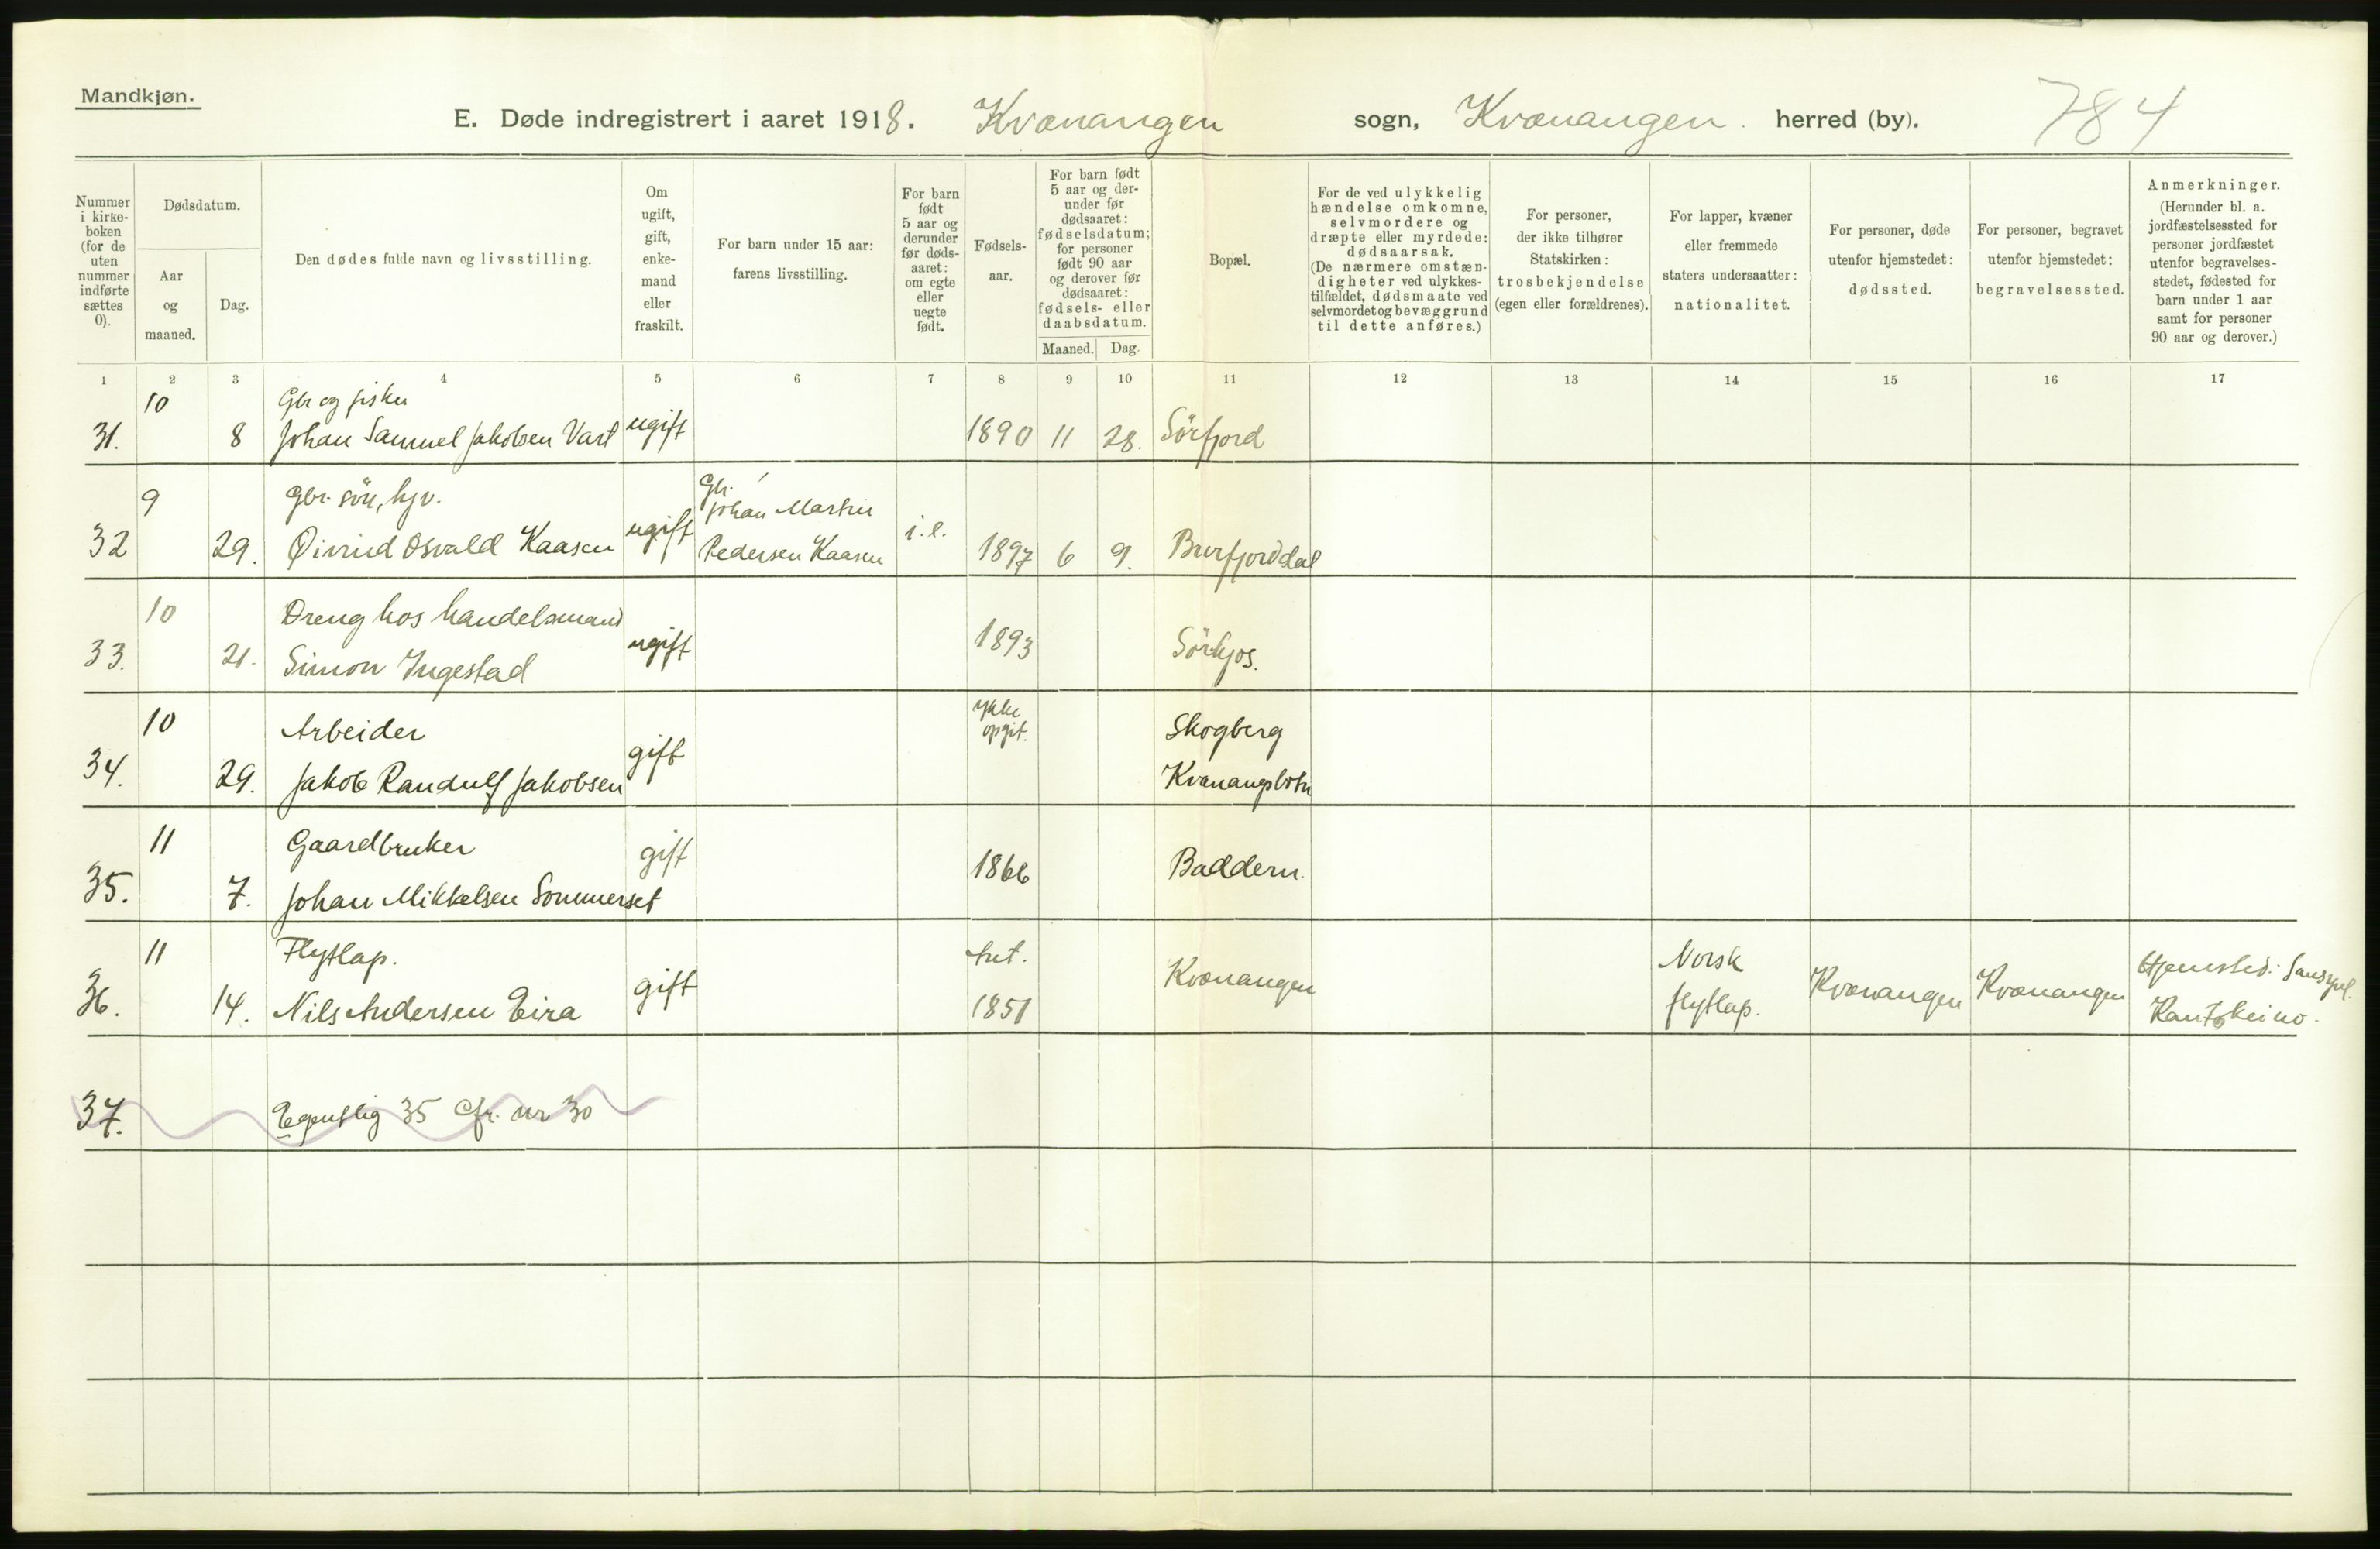 Mandkjøn.
E. Døde indregistrert i aaret 1918. Kvænangen sogn, Kvænangen herred (by). 784
Nummer i kirke-boken (for de uten nummer indførte sættes 0).
Dødsdatum.
Aar og maaned.
Dag.
Den dødes fulde navn og livsstilling.
Om ugift, gift, enke-mand eller fraskilt.
For barn under 15 aar: farens livsstilling.
For barn født 5 aar og derunder før døds-aaret: om egte eller uegte født.
Fødsels-aar.
For barn født 5 aar og der-under før dødsaaret: fødselsdatum; for personer født 90 aar og derover før dødsaaret: fødsels- eller daabsdatum.
Maaned. Dag.
Bopæl.
For de ved ulykkelig hændelse omkomne, selvmordere og dræpte eller myrdede: dødsaarsak. (De nærmere omstæn-digheter ved ulykkes-tilfældet, dødsmaate ved selvmordet og bevæggrund til dette anføres.)
For personer, der ikke tilhører Statskirken: trosbekjendelse (egen eller forældrenes).
For lapper, kvæner eller fremmede staters undersaatter: nationalitet.
For personer, døde utenfor hjemstedet: dødssted.
For personer, begravet utenfor hjemstedet: begravelsessted.
Anmerkninger. (Herunder bl. a. jordfæstelsessted for personer jordfæstet utenfor begravelses-stedet, fødested for barn under 1 aar samt for personer 90 aar og derover.)
1 2 3 4 5 6 7 8 9 10 11 12 13 14 15 16 17
10 Gbr og fisker
31. 8 Johan Samuel Jakobsen Vart ugift 1890 11 28. Sörfjord
9 gbr. sön, hjv. Gbr. Johan Martin
32 29. Øivind Osvald Kaasen ugift Pedersen Kaasen i.e. 1897 6 9. Burfjorddal
10 Dreng hos handelsmand
33. 21. Simon Ingestad ugift 1893 Sörkjos.
10 Arbeider ykke opgit. Skogberg
34. 29. Jakob Randulf Jakobsen gift Kvænangsbotn
11 Gaardbruker
35. 7. Johan Mikkelsen Sommerset gift 1866 Baddern.
11 Flytlap. Ant. Norsk Hjemsted:
36. 14. Nils Andersen Eira gift 1851 Kvænangen flytlap. Kvænangen Kvænangen Kautokeino.
37. Egentlig 35 Cfr. nr 30